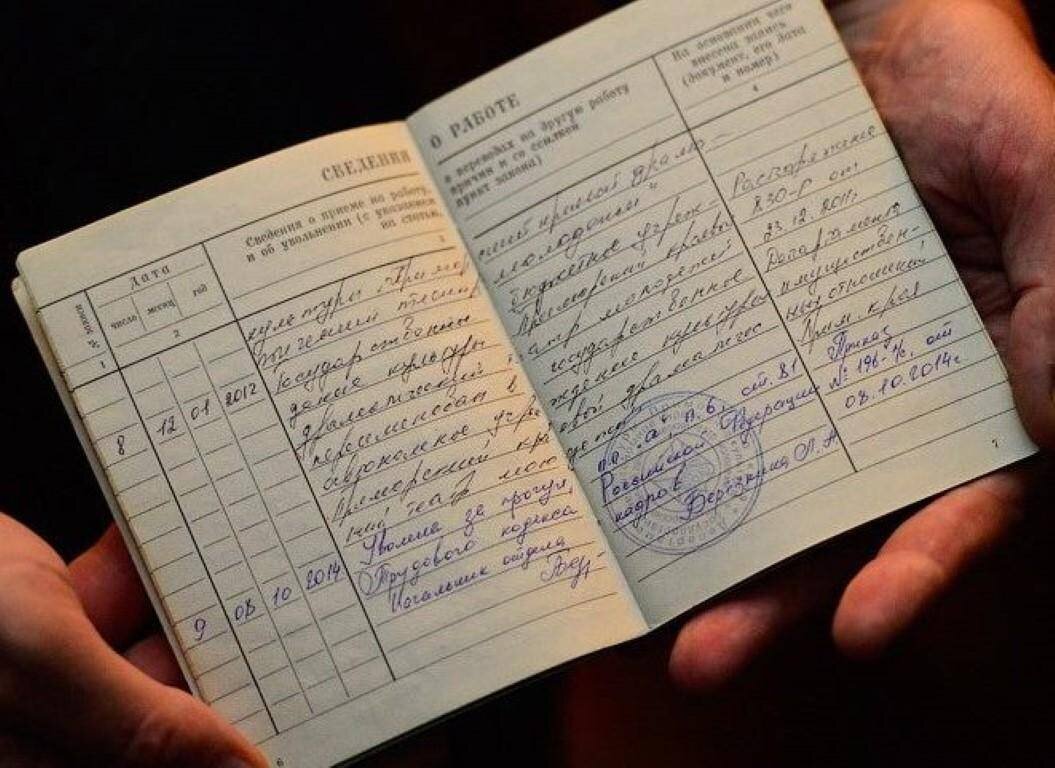 СВЕДЕНИЯ О РАБОТЕ
№ записи
Дата
число
месяц
год
Сведения о приеме на работу,
о переводах на другую работу
и об увольнении (с указанием
причин и со ссылкой
на статью,
пункт закона)
На основании чего
внесена запись
(документ, его дата
и номер)
1
2
3
4
культуры "Примор
ский краевой драма-
молодежи"
8 12 01 2012
Государственное
бюджетное учреж-
дение культуры
Приморский краевой
драматический
театр молодежи
переименован в
государственное
автономное учре
ждение культуры
Приморский кра
евой драматичес
кий театр моло
дежи
Распоряжение
730-р от
23.12.2011г
Департамента
имуществен-
ных отношений
Прим. края
9 08 10 2014
Уволена за прогул,
п.п. "а", п. 6, ст. 81
Трудового кодекса
Российской Федерации
Начальник отдела
кадров
Березкина Л.А
Приказ
№ 196-к, от
08.10.2014г
6
7